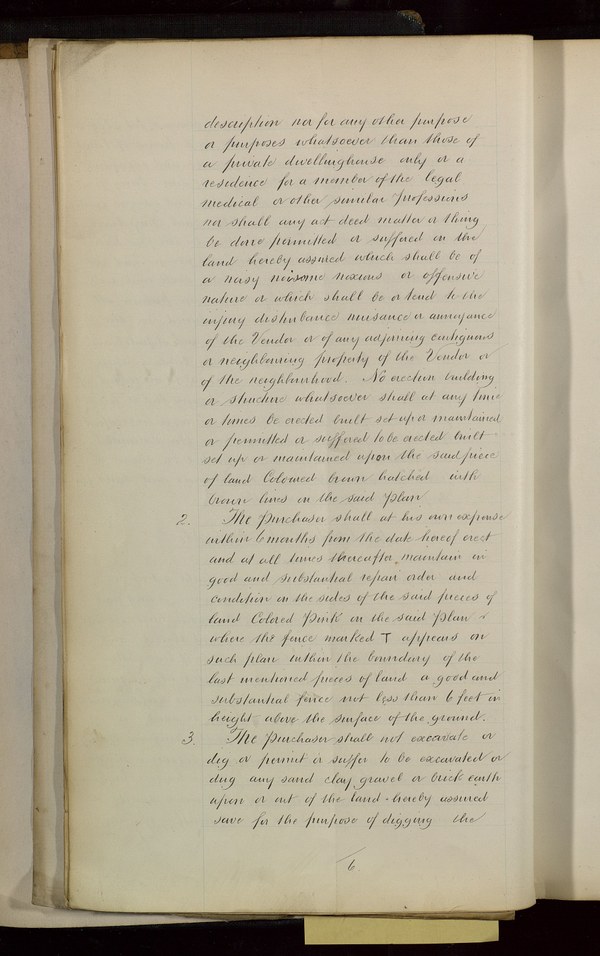 description nor for any other purpose
or purposes whatsoever than those of
a private dwellinghouse only or a
residence for a member of the legal
medical or other similar Professions
nor shall any act deed matter or thing
be done permitted or suffered on the
land hereby assured which shall be of
a noisy noisome noxious or offensive
nature or which shall be or tend to the
injury disturbance nuisance or annoyance
of the Vendor or of any adjoining contiguous
or neighbouring property of the Vendor or
of the neighbourhood. No erection building
or structure whatsoever shall at any time
or times be erected built set up or maintained
or permitted or suffered to be erected built
set up or maintained upon the said piece
of land Coloured brown hatched with
brown lines on the said Plan
2. The Purchaser shall at his own expense
within 6 months from the date hereof erect
and at all times thereafter maintain in
good and substantial repair order and
condition on the sides of the said pieces of
land Colored Pink on the said Plan
where the fence marked T appears on
such plan within the boundary of the
last mentioned pieces of land a good and
substantial fence not less than 6 feet in
height above the surface of the ground.
3. The Purchaser shall not excavate or
dig or permit or suffer to be excavated or
dug any sand clay gravel or brick earth
upon or out of the land hereby assured
save for the purpose of digging the
6